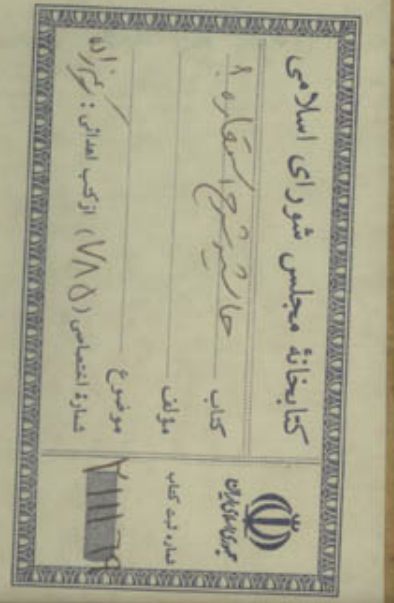 کتابخانهٔ مجلس شورای اسلامی
کتاب حاشیه شرح استعاره
مؤلف
موضوع
شمارهٔ اختصاصی (۷۸۵) از کتب اهدائی:
جمهوری اسلامی ایران
شماره ثبت کتاب